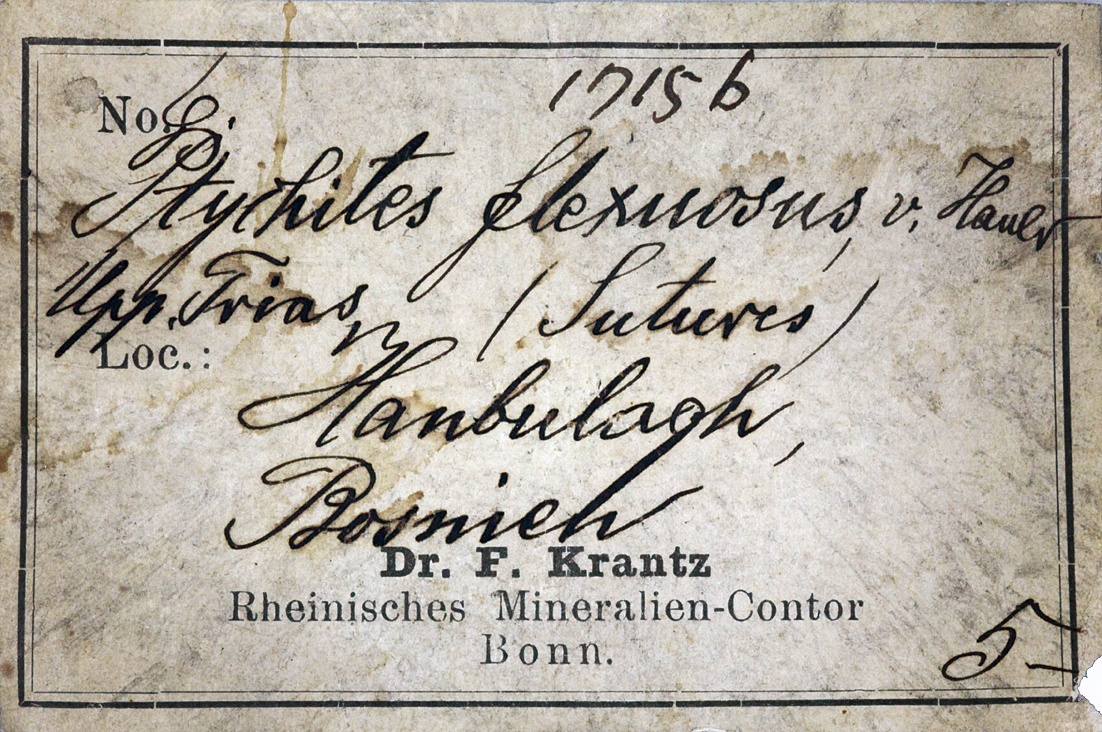 1715 b
No.
Ptychites flexuosus, v. Hauer
Upp. Trias, (Sutures)
Loc.:
Hanbulogh,
Bosnien
Dr. F. Krantz
Rheinisches Mineralien-Contor
Bonn.
5-